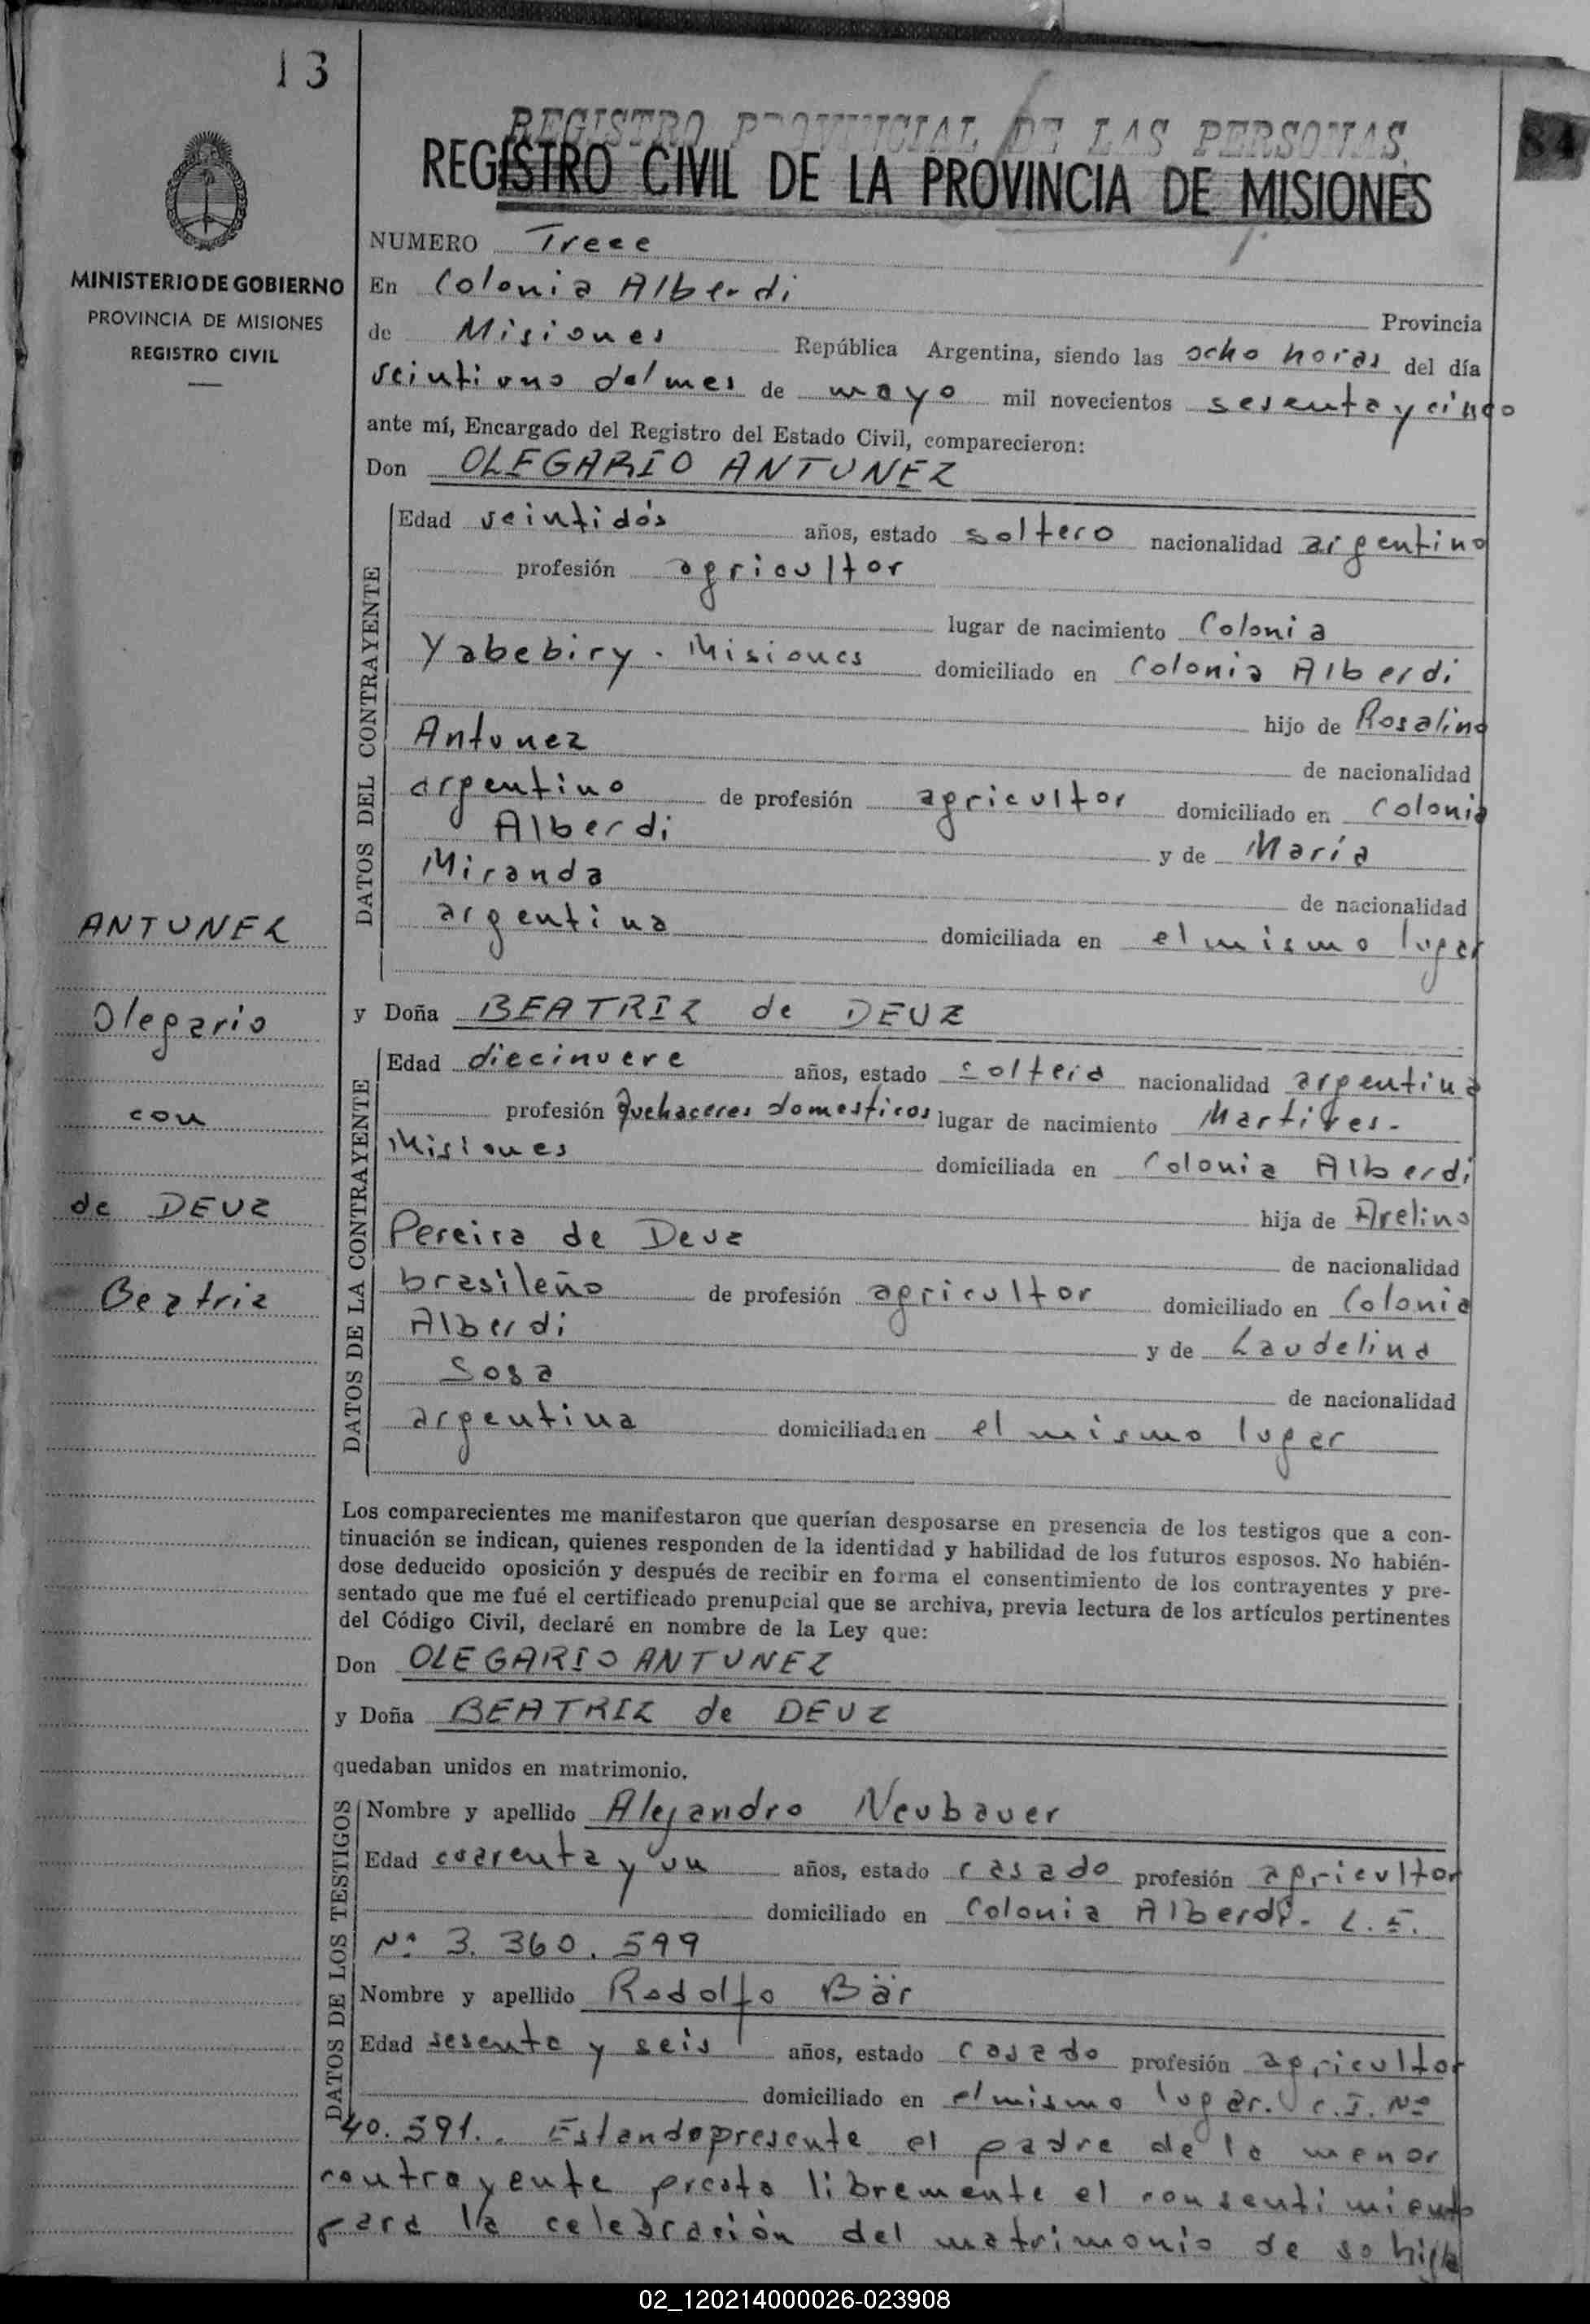 13
REGISTRO PROVINCIAL DE LAS PERSONAS.
84
REGISTRO CIVIL DE LA PROVINCIA DE MISIONES
MINISTERIO DE GOBIERNO
PROVINCIA DE MISIONES
REGISTRO CIVIL
NUMERO Trece
En Colonia Alberdi Provincia
de Misiones República Argentina, siendo las ocho horas del día
veintiuno del mes de mayo mil novecientos sesenta y cinco
ante mí, Encargado del Registro del Estado Civil, comparecieron:
Don OLEGARIO ANTUNEZ
DATOS DEL CONTRAYENTE
Edad veintidós años, estado soltero nacionalidad argentino
profesión agricultor
lugar de nacimiento Colonia
Yabebiry. Misiones domiciliado en Colonia Alberdi
hijo de Rosalino
Antunez
de nacionalidad
argentino de profesión agricultor domiciliado en Colonia
Alberdi y de María
Miranda
de nacionalidad
argentina domiciliada en el mismo lugar
ANTUNEZ
Olegario
con
de DEUZ
Beatriz
y Doña BEATRIZ de DEUZ
DATOS DE LA CONTRAYENTE
Edad diecinueve años, estado soltera nacionalidad argentina
profesión quehaceres domesticos lugar de nacimiento Martires-
Misiones domiciliada en Colonia Alberdi
hija de Avelino
Pereira de Deuz
de nacionalidad
brasileño de profesión agricultor domiciliado en Colonia
Alberdi y de Laudelina
Sosa
de nacionalidad
argentina domiciliada en el mismo lugar
Los comparecientes me manifestaron que querían desposarse en presencia de los testigos que a con-
tinuación se indican, quienes responden de la identidad y habilidad de los futuros esposos. No habién-
dose deducido oposición y después de recibir en forma el consentimiento de los contrayentes y pre-
sentado que me fué el certificado prenupcial que se archiva, previa lectura de los artículos pertinentes
del Código Civil, declaré en nombre de la Ley que:
Don OLEGARIO ANTUNEZ
y Doña BEATRIZ de DEUZ
quedaban unidos en matrimonio.
DATOS DE LOS TESTIGOS
Nombre y apellido Alejandro Neubauer
Edad cuarenta y un años, estado casado profesión agricultor
domiciliado en Colonia Alberdi- L.E.
Nº 3.360.599
Nombre y apellido Rodolfo Bär
Edad sesenta y seis años, estado casado profesión agricultor
domiciliado en el mismo lugar. C.I. Nº
40.591.. Estando presente el padre de la menor
contrayente presta libremente el consentimiento
para la celebración del matrimonio de su hija
02_120214000026-023908